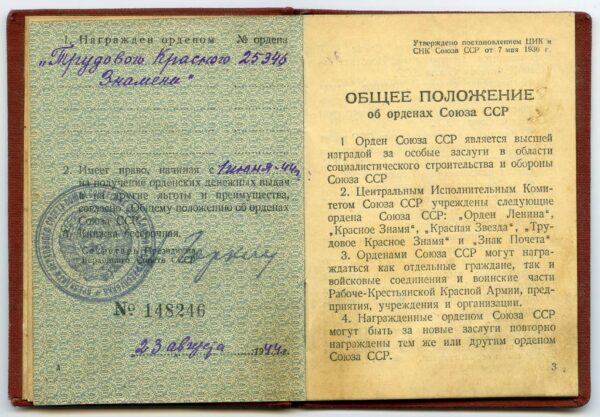 1. Награжден орденом № ордена
„Трудового Красного 25346
Знамени“
2. Имеет право, начиная с 1 июня-44г
на получение орденских денежных выдач
и на другие льготы и преимущества,
согласно Общему положению об орденах
Союза ССР.
3. Книжка бессрочная.
Секретарь Президиума
Верховного Совета СССР
Горкин
№ 148246
23 августа 1944 г.
Утверждено постановлением ЦИК и
СНК Союза ССР от 7 мая 1936 г.
ОБЩЕЕ ПОЛОЖЕНИЕ
об орденах Союза ССР
1 Орден Союза ССР является высшей
наградой за особые заслуги в области
социалистического строительства и обороны
Союза ССР
2. Центральным Исполнительным Коми-
тетом Союза ССР учреждены следующие
ордена Союза ССР: „Орден Ленина",
„Красное Знамя", „Красная Звезда", „Тру-
довое Красное Знамя" и „Знак Почета"
3. Орденами Союза ССР могут наг-
раждаться как отдельные граждане, так и
войсковые соединения и воинские части
Рабоче-Крестьянской Красной Армии, пред-
приятия, учреждения и организации.
4. Награжденные орденом Союза ССР
могут быть за новые заслуги повторно
награждены тем же или другим орденом
Союза ССР.
3